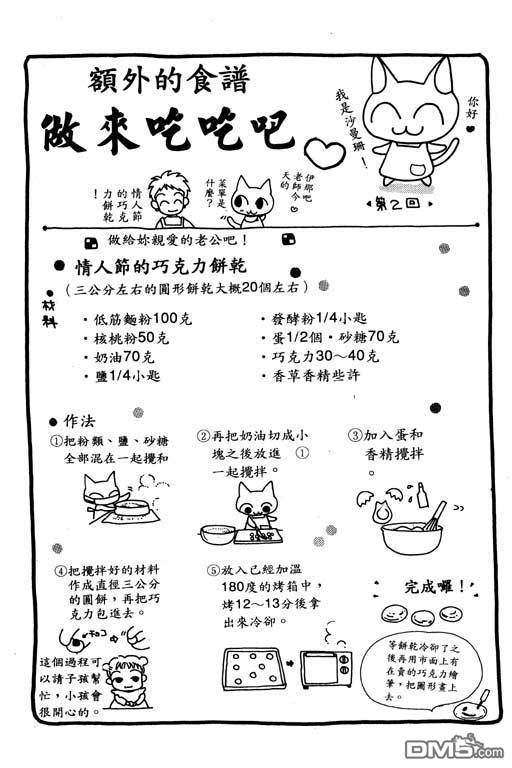 額外的食譜
做來吃吃吧
你好♥
我是沙曼珊！
第2回
伊那吧
老師今
天的
菜單是
什麼？
情人節
的巧克
力餅乾
！
做給妳親愛的老公吧！
● 情人節的巧克力餅乾
（三公分左右的圓形餅乾大概20個左右）
材料
・低筋麵粉100克
・核桃粉50克
・奶油70克
・鹽1/4小匙
・發酵粉1/4小匙
・蛋1/2個・砂糖70克
・巧克力30～40克
・香草香精些許
● 作法
①把粉類、鹽、砂糖
全部混在一起攪和
②再把奶油切成小
塊之後放進 ①
一起攪拌。
③加入蛋和
香精攪拌
。
④把攪拌好的材料
作成直徑三公分
的圓餅，再把巧
克力包進去。
チョコ
這個過程可
以請子孩幫
忙，小孩會
很開心的。
⑤放入已經加溫
180度的烤箱中，
烤12～13分後拿
出來冷卻。
完成囉！
等餅乾冷卻了之
後再用市面上有
在賣的巧克力繪
筆，把圖形畫上
去。
DM5.com